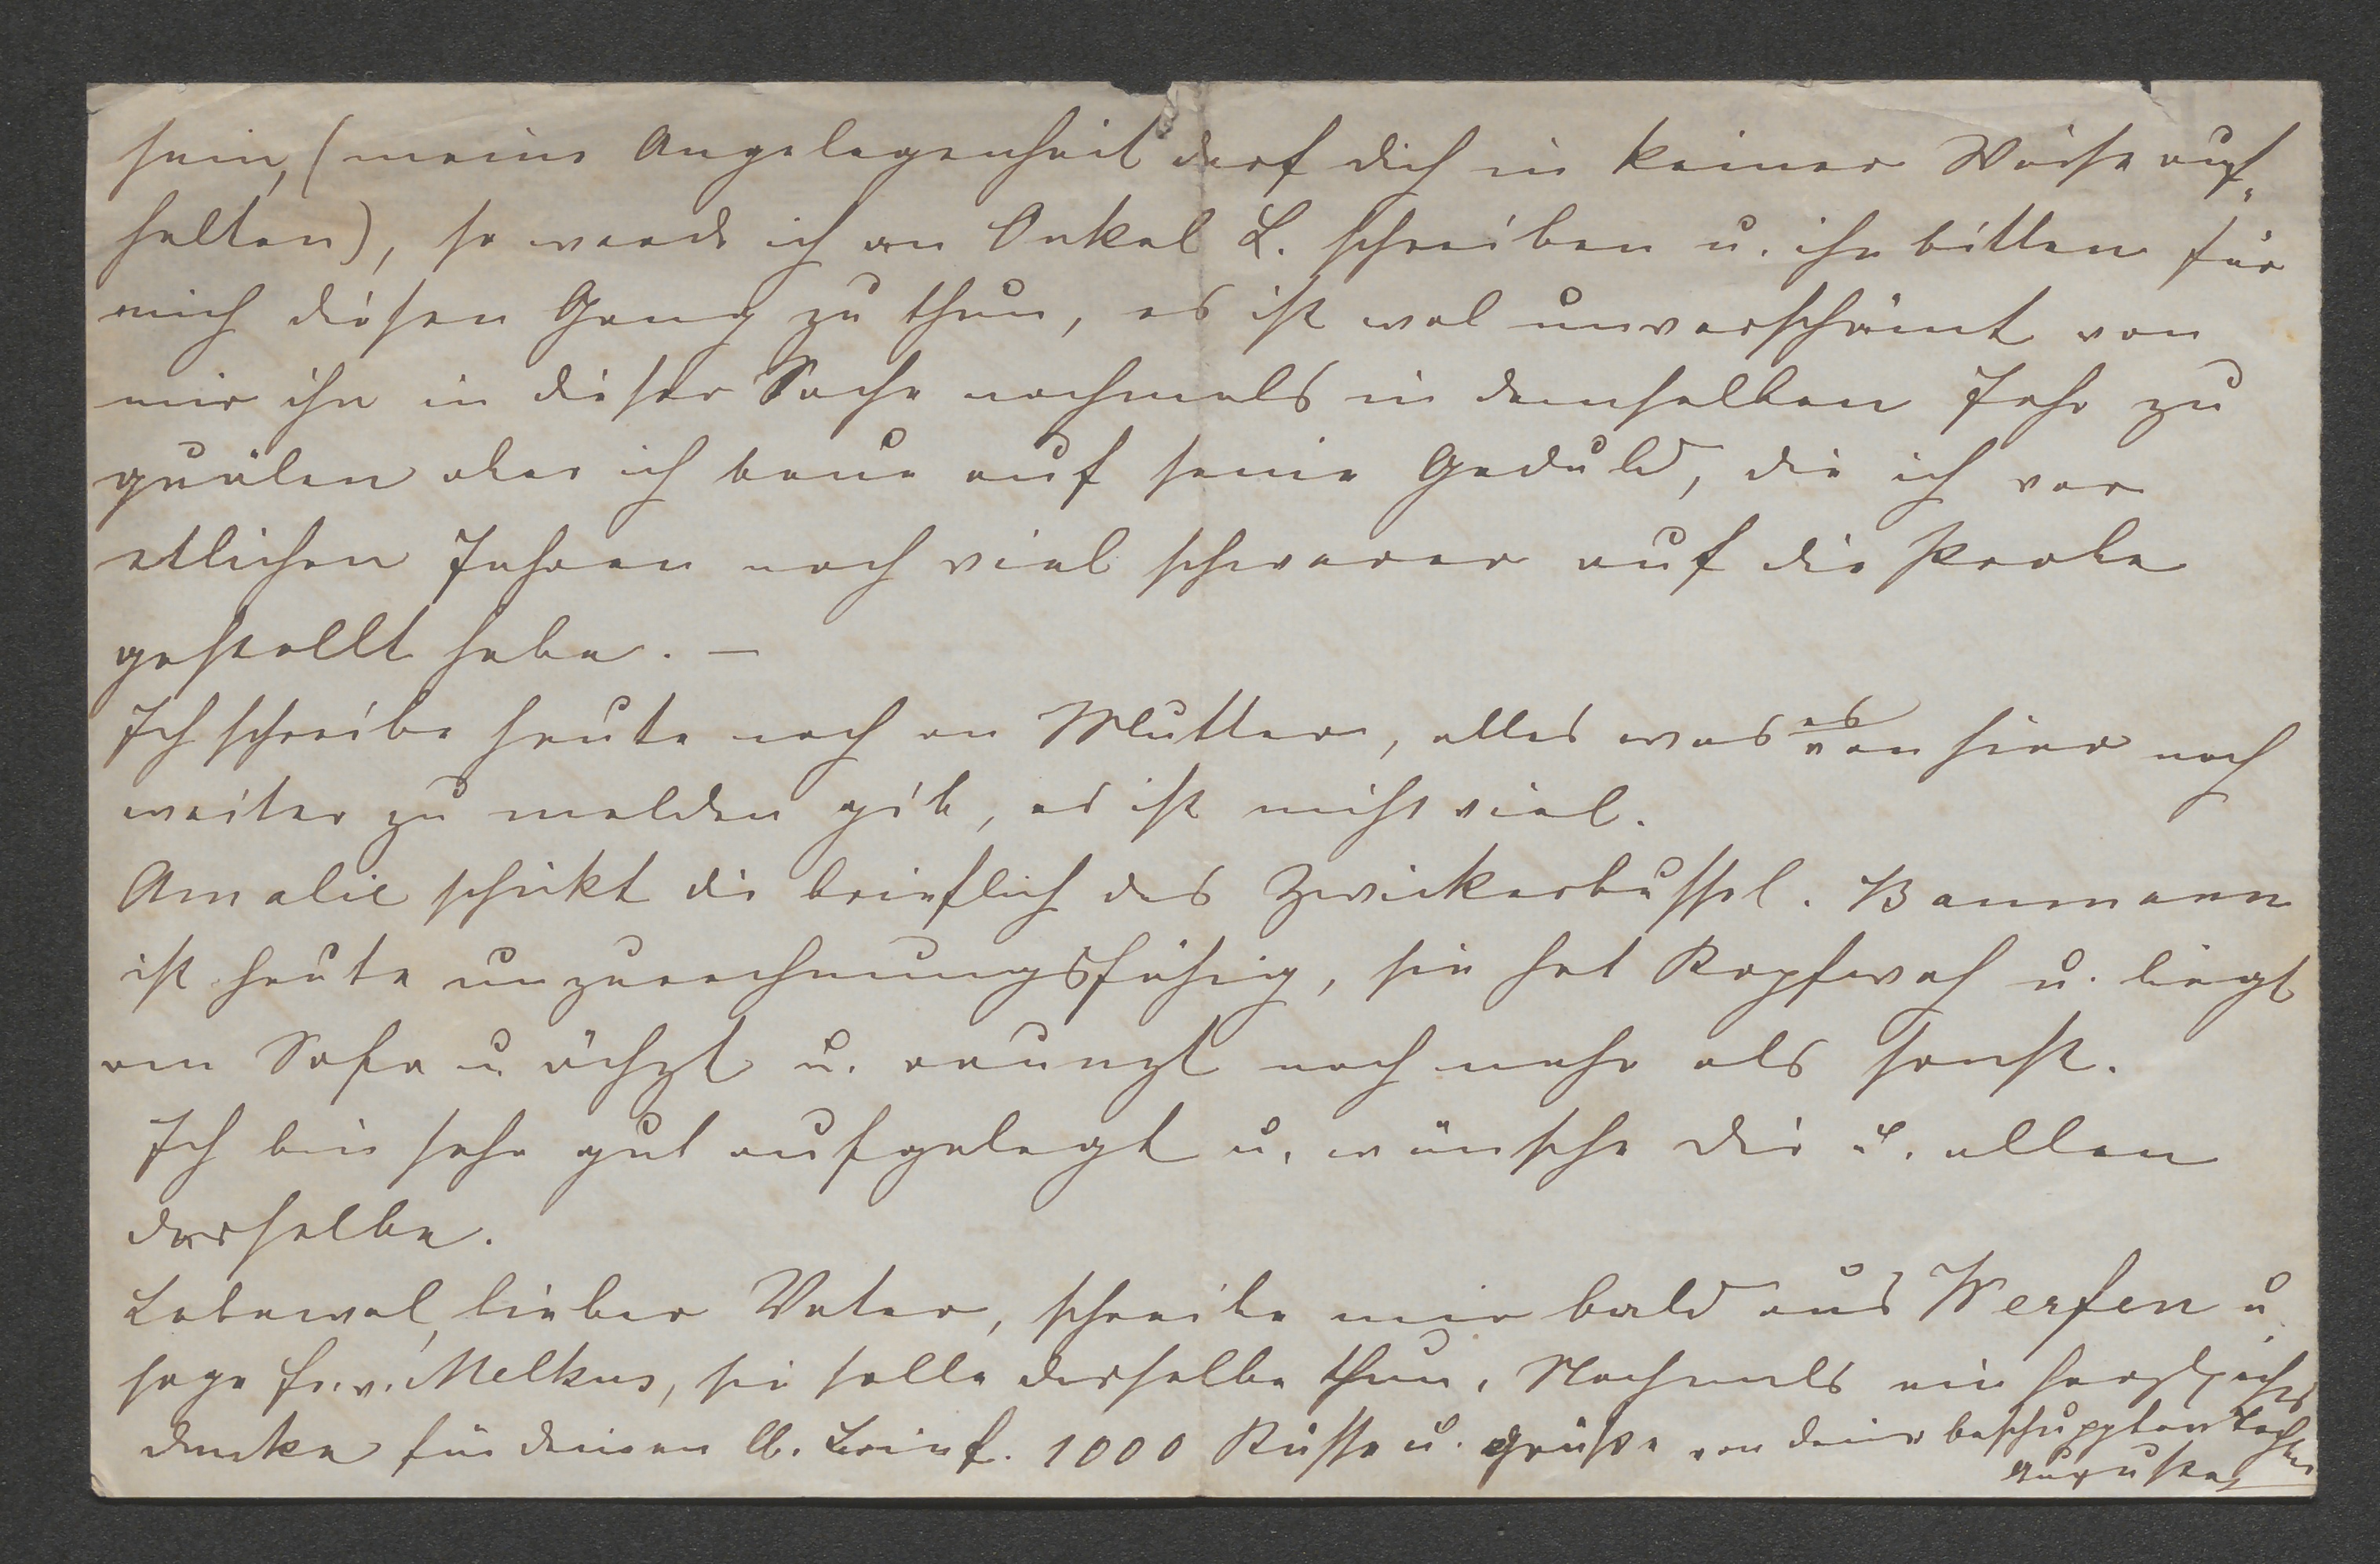 sein, (meine Angelegenheit darf dich in keiner Weise auf„
halten), so werde ich an Onkel L. schreiben u. ihn bitten für
mich diesen Gang zu thun, es ist wol unverschämt von
mir ihn in dieser Sache nochmals in demselben Jahr zu
quälen aber ich baue auf seine Geduld, die ich vor
etlichen Jahren noch viel schwerer auf die Probe
gestellt habe. —
Ich schreibe heute noch an Mutter, alles was es von hier noch
weiter zu melden gibt, es ist nicht viel.
Amalie schikt dir brieflich das Zwickerbussel. Baumann
ist heute unzurechnungsfähig, sie hat Kopfweh u. liegt
am Sofa u. ächzt u. raunzt noch mehr als sonst.
Ich bin sehr gut aufgelegt u. wünsche dir u. allen
dasselbe.
Lebewol, lieber Vater, schreibe mir bald aus Werfen u.
sage Fr. v. Melkus, sie solle dasselbe thun. Nochmals ein
danke für deinen lb. Brief. 1000 Küsse u. Grüße von deiner beschuppten Tochter
Auguste